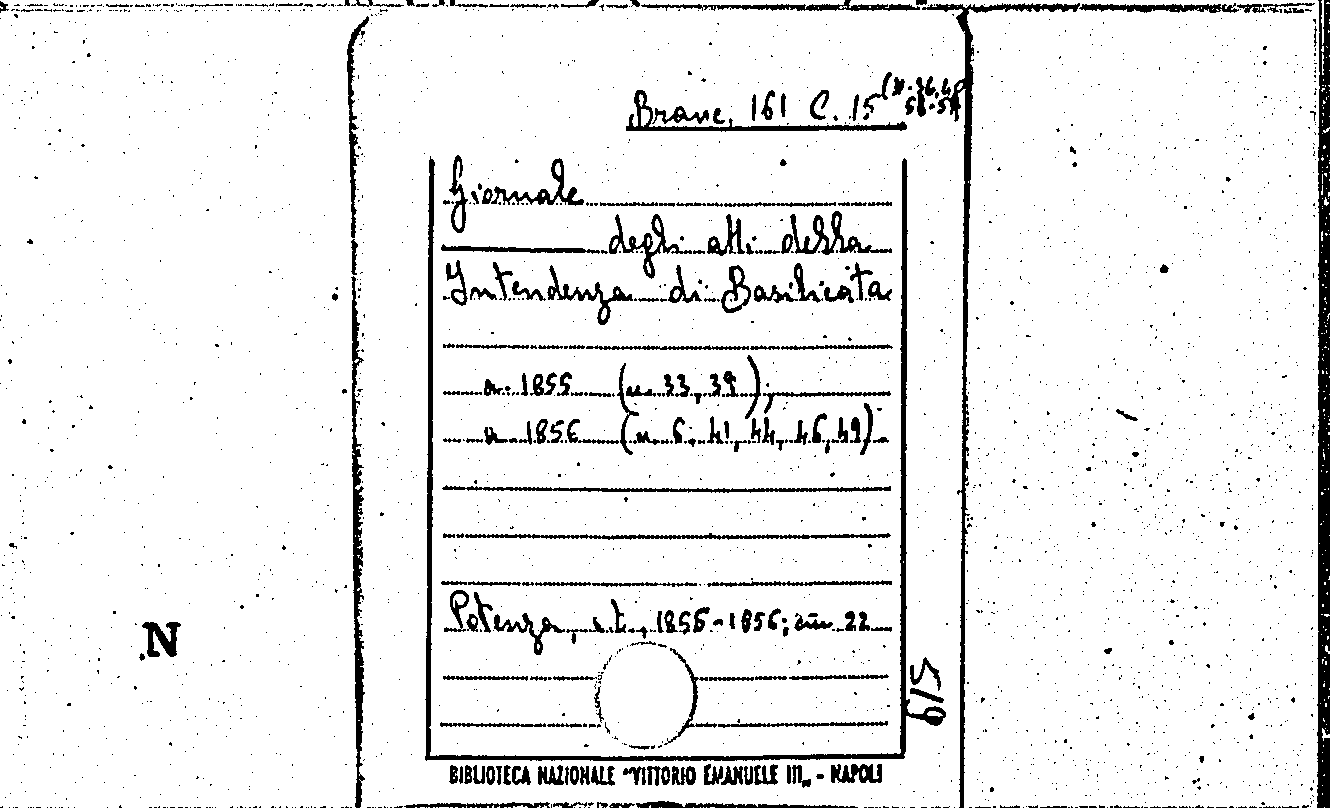 Branc. 161 C. 15
Giornale
degli atti della
Intendenza di Basilicata
a. 1855 (n. 33, 39);
a. 1856 (n. 6, 41, 44, 46, 49).
Potenza, s.t., 1855-1856; cm 22
N
6/5
BIBLIOTECA NAZIONALE "VITTORIO EMANUELE III„ - NAPOLI